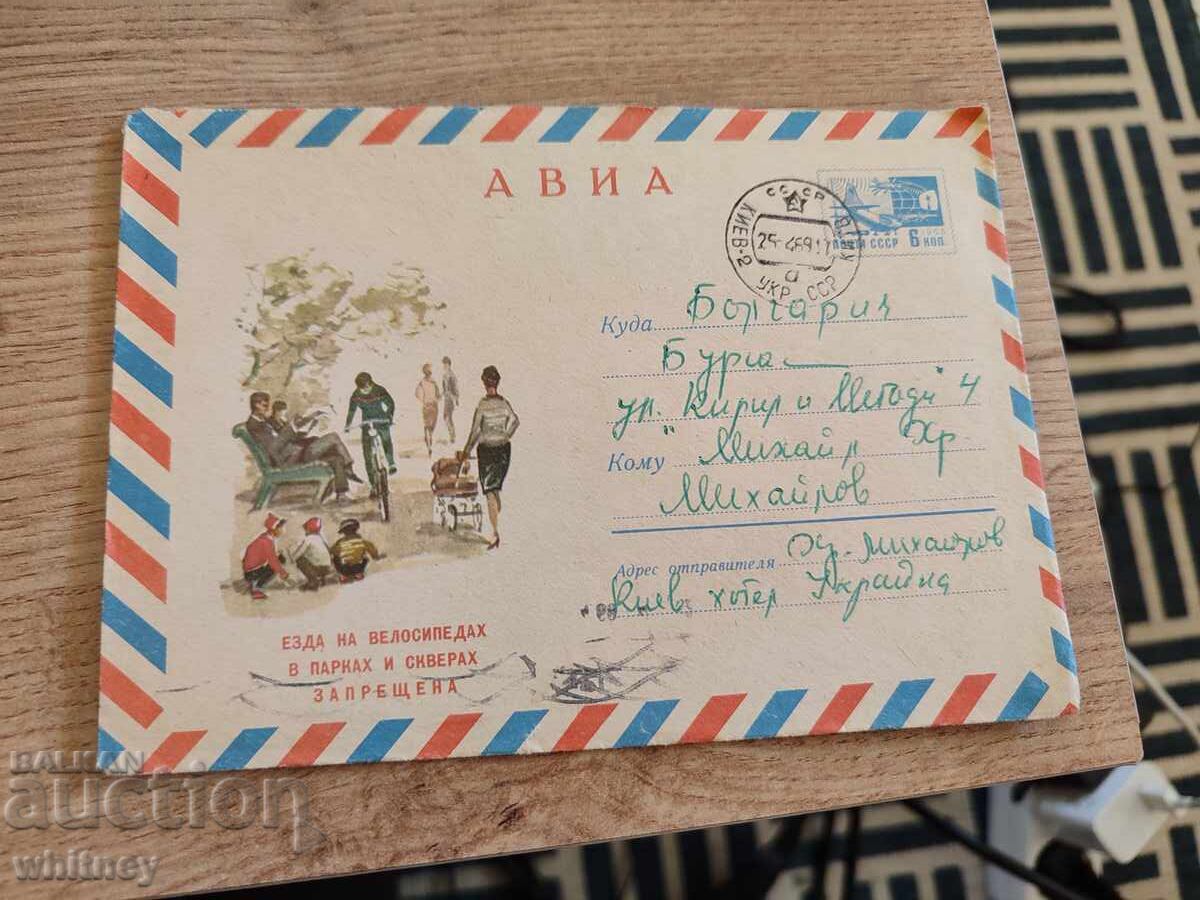 АВИА
СССР
КИЕВ-2
25-469 17
а
УКР ССР
ПОЧТА СССР 6 КОП.
Куда Болгария
Бургас
ул. "Кирил и Методи" 4
Кому Михаил Хр
Михайлов
Адрес отправителя Михайлов
Киев хотел Украйна
ЕЗДА НА ВЕЛОСИПЕДАХ
В ПАРКАХ И СКВЕРАХ
ЗАПРЕЩЕНА
BALKAN
auction
whitney